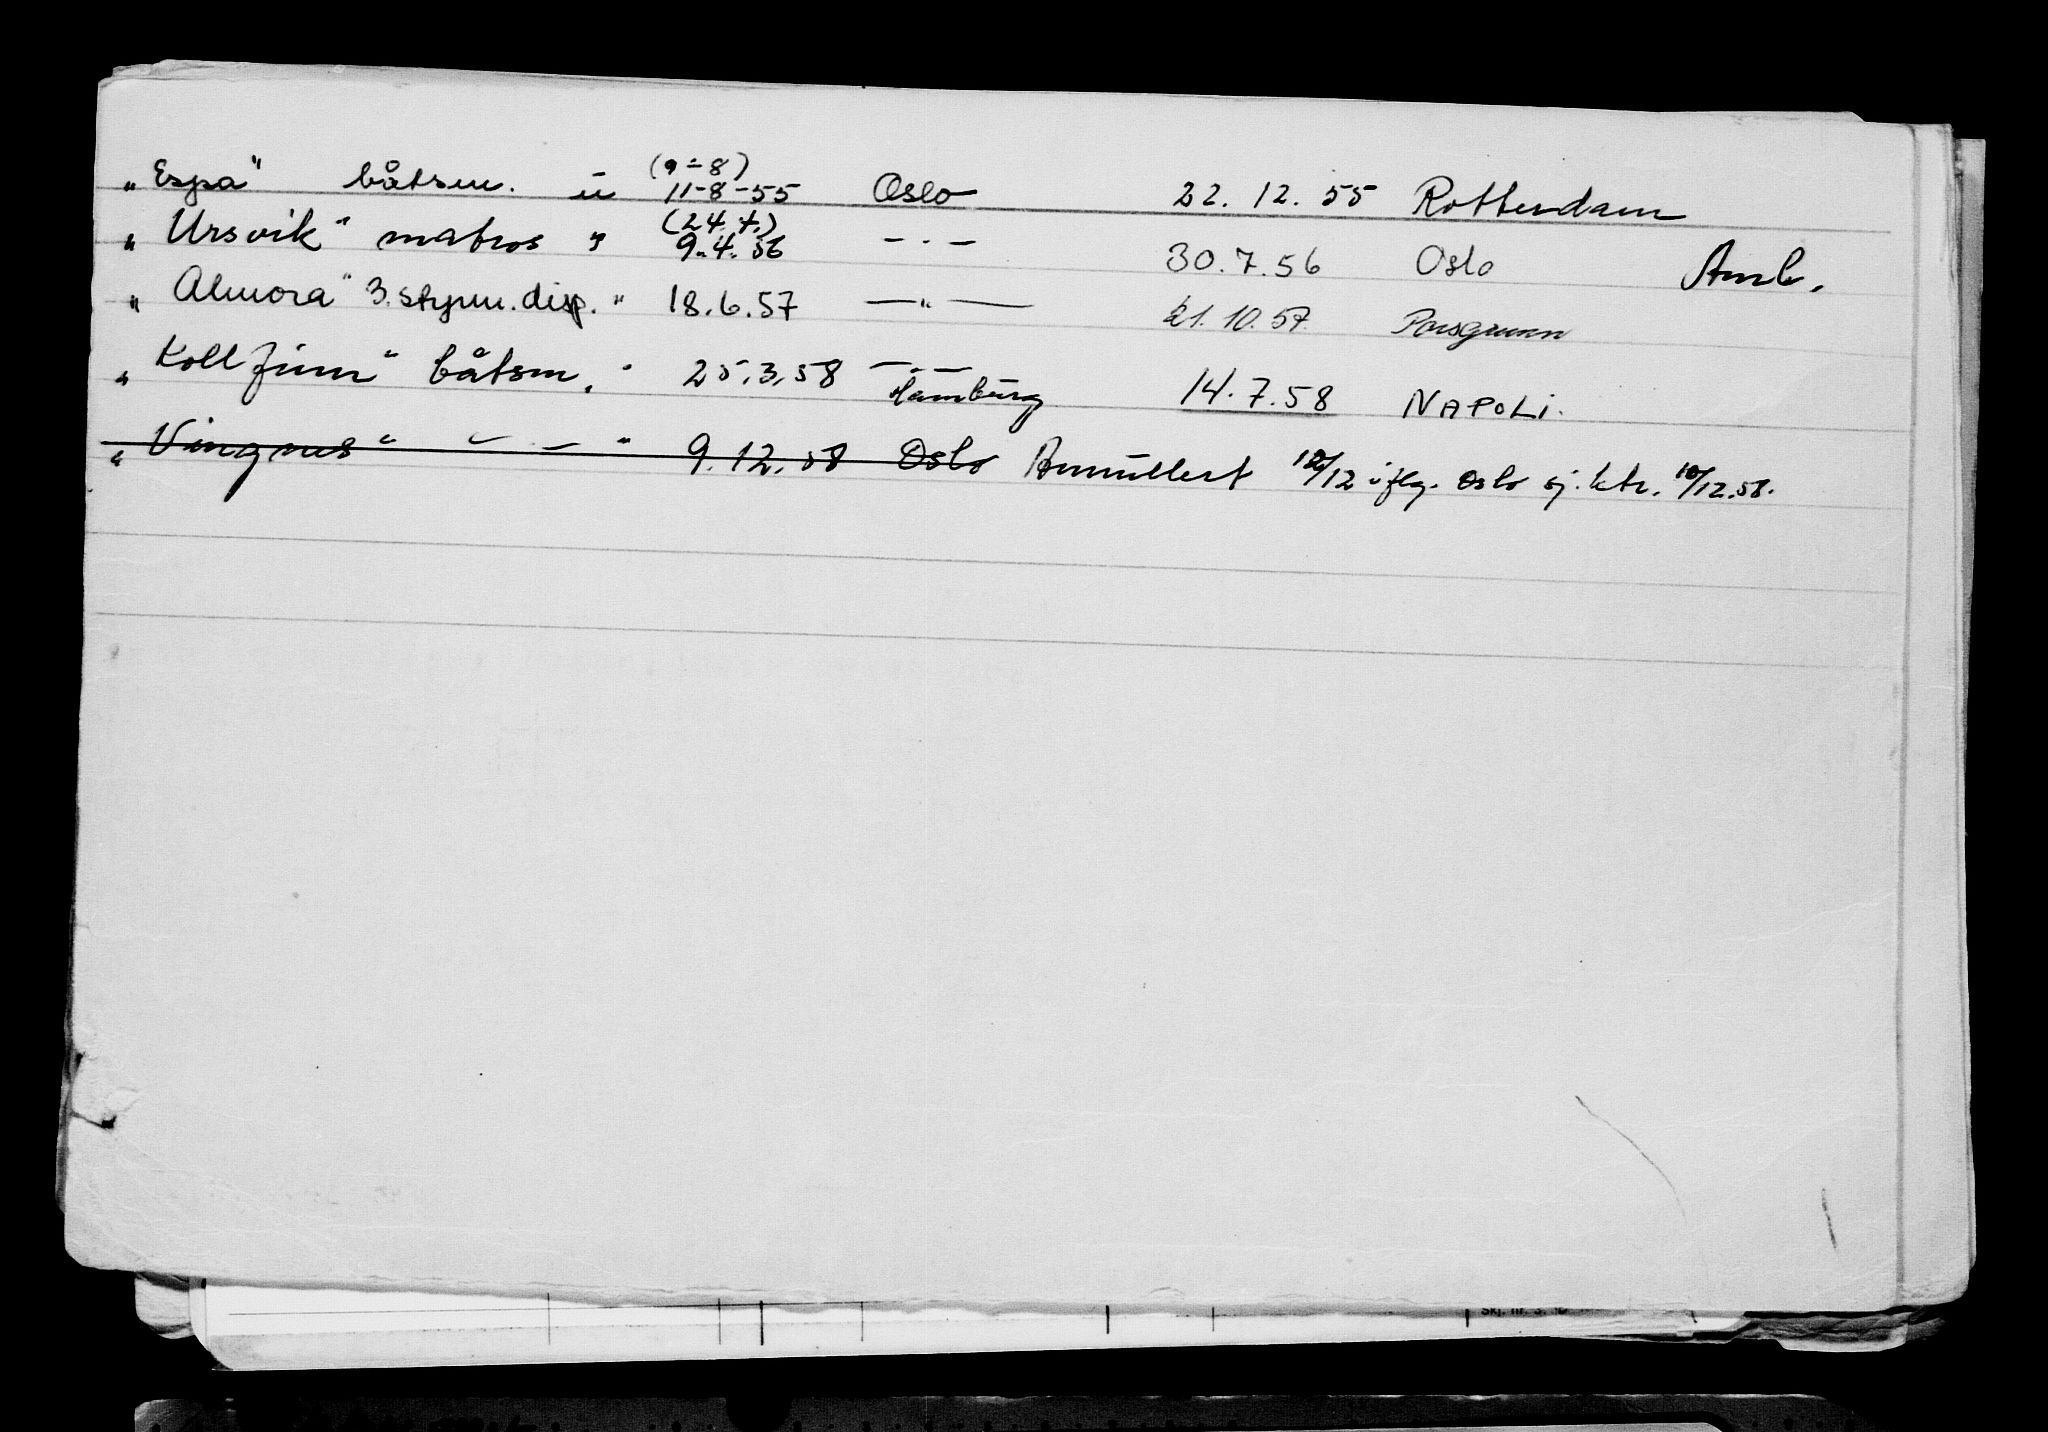 (9-8)
„Espa" båtsm. u 11-8-55 Oslo 22.12.55 Rotterdam
(24.4.)
„Ursvik" matros " 9.4.56 — . — 30.7.56 Oslo Amb.
„Almora" 3. styrm. disp. " 18.6.57 — " — 21.10.57 Porsgrunn
„Kollfinn" båtsm. " 25.3.58 — . — Hamburg 14.7.58 NAPOLI.
„Vingnes" — . — " 9.12.58 Oslo Annullert 12/12 iflg. Oslo sj. ktr. 10/12.58.
Skj. nr. 3.